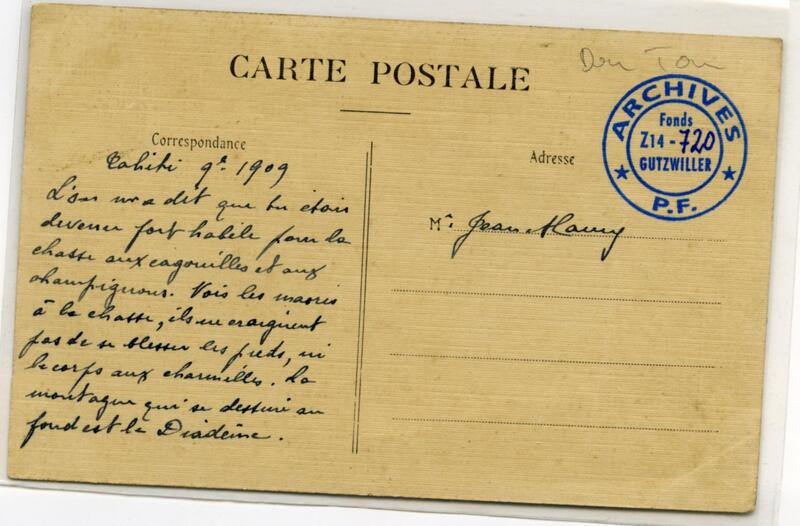 CARTE POSTALE
Don Tom
ARCHIVES
Fonds
Z14 - 720
GUTZWILLER
P.F.
Correspondance
Tahiti 9e 1909
L'on m'a dit que tu étais
devenu fort habile pour la
chasse aux cagouilles et aux
champignons. Vois les maoris
à la chasse, ils ne craignent
pas de se blesser les pieds, ni
le corps aux charmilles. La
montagne qui se dessine au
fond est le Diadème.
Adresse
Mr. Jean